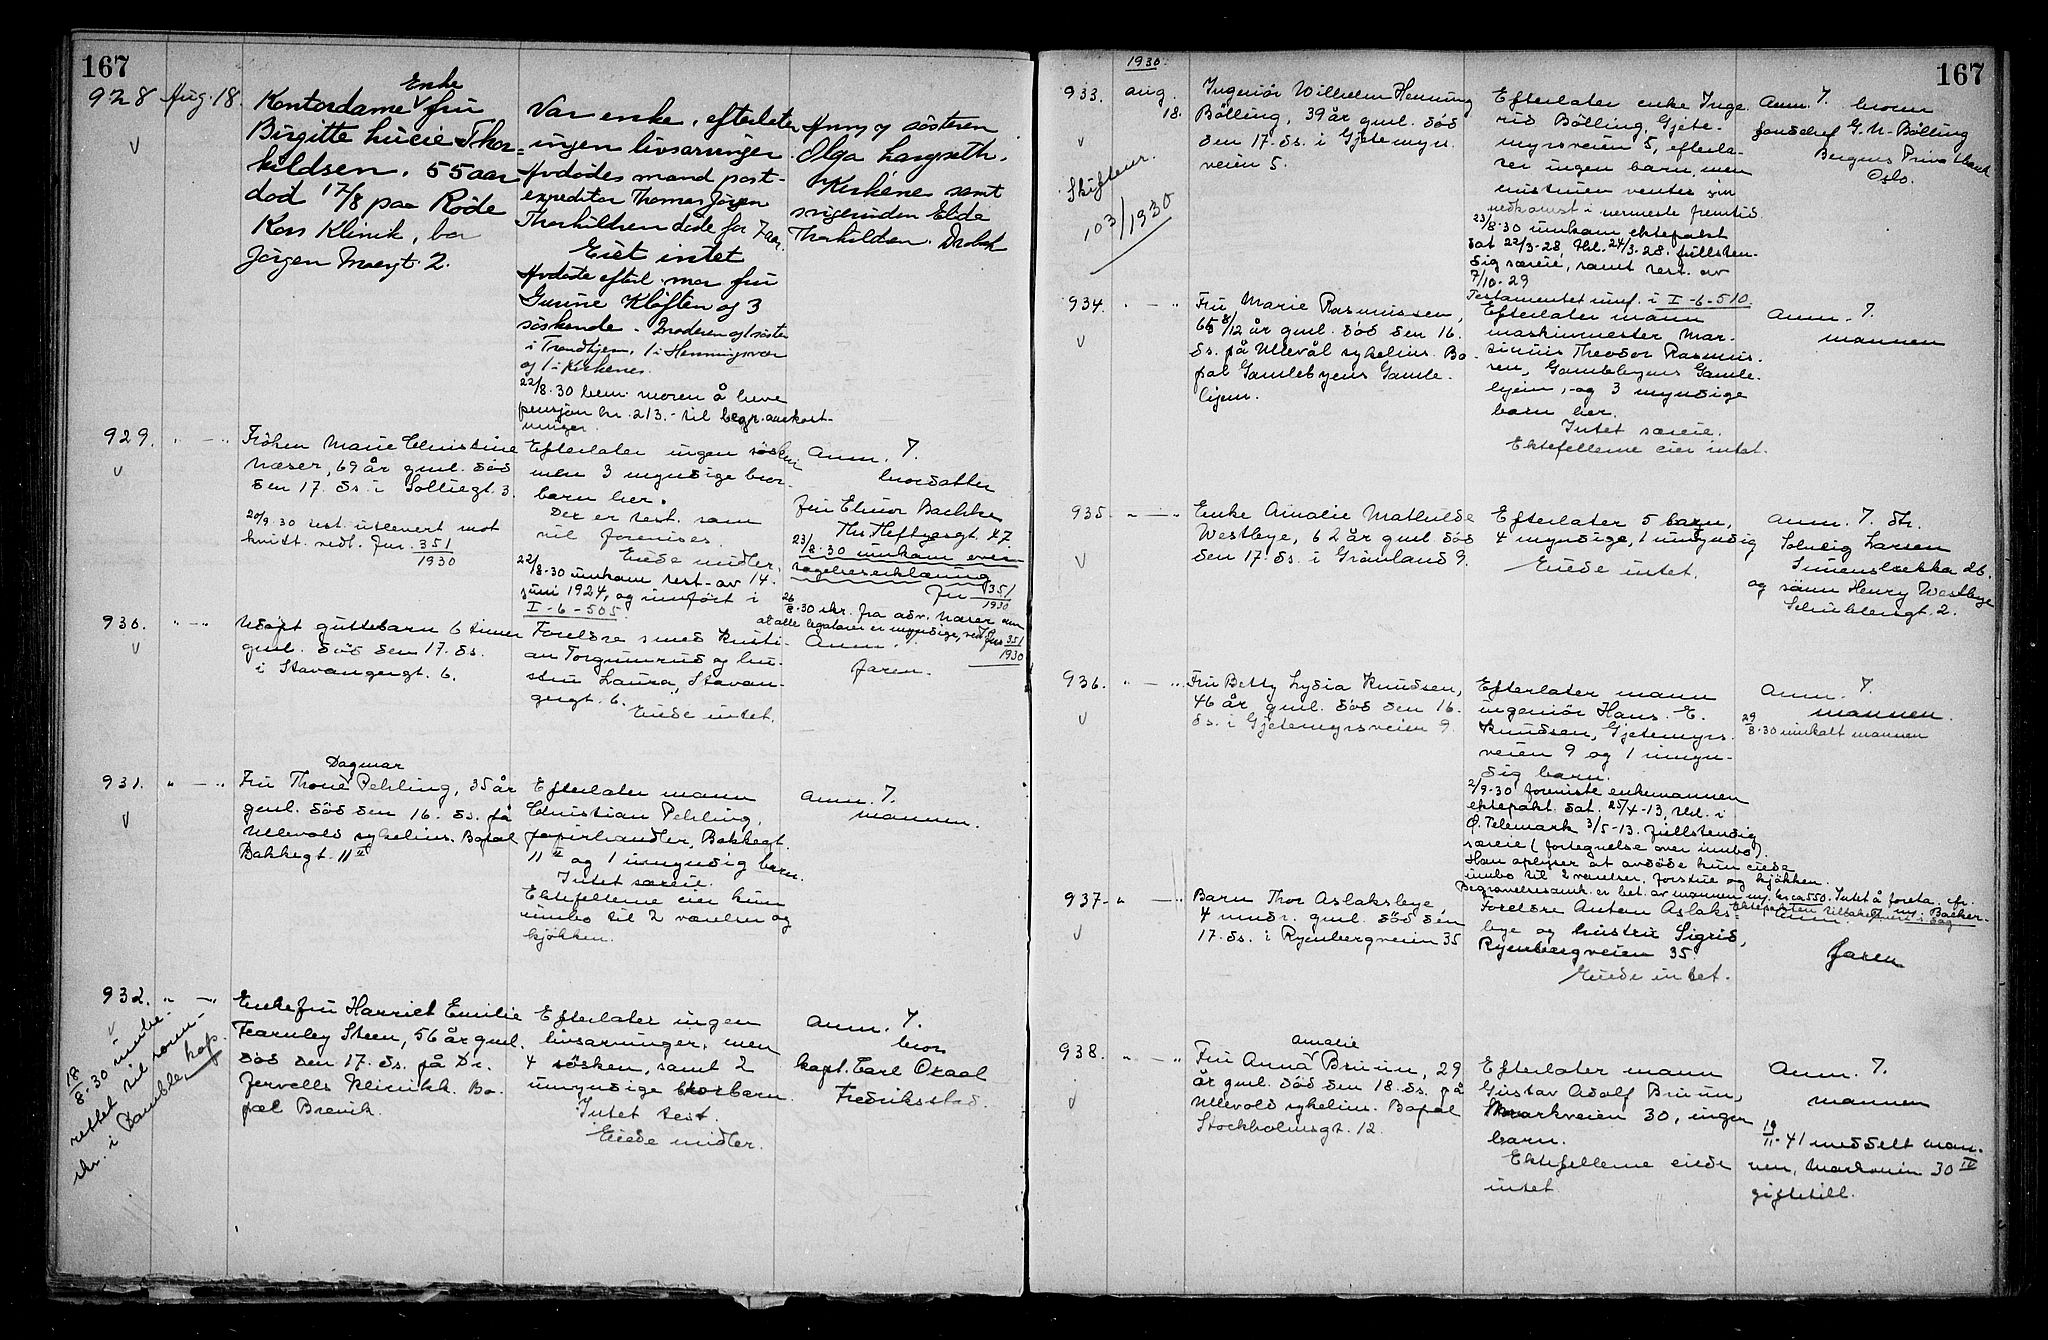 167
928 Aug. 18.
Enke
Kontordame fru
Birgitte Lucie Thor=
kildsen, 55 aar
död 17/8 paa Röde
Kors Klinik, bor
Jörgen Moesgt. 2.
Var enke, efterlater
ingen livsarvinger.
Avdödes mand post-
expeditör Thomas Jörgen
Thorkildsen döde for 7 aar.
Eiet intet
Avdöde efterl. mor fru
Gurine Kloften og 3
söskende - Broderen og 1 söster
i Trondhjem, 1 i Henningsvær
og 1 i Kirkenes.
22/8.30 bem. moren å heve
pensjon kr. 213.- til begr. omkost-
ninger.
Anm. av søsteren
Olga Langseth,
Kirkene samt
svigerinden Elde
Thorkildsen. Drøbak
929. " — "
Frøken Marie Christine
Næser, 69 år gml. död
den 17. ds. i Solliegt. 3.
20/9.30 test. utlevert mot
kvitt. vedl. Jnr. 351/1930
Efterlater ingen søsken
men 3 myndige bror-
barn her.
Der er test. som
vil forevises.
Eiede midler.
22/8.30 innkom test. av 14.
juni 1924, og innført i
I-6-505.
Anm. 7.
brordatter
fru Elinor Bachke
Ths. Heftyesgt. 47
23/8.30 innkom over-
tagelseserklæring
Jnr 351/1930
26/8.30 skr. fra adv. Næser om
at alle legatarer er myndige, vedl. Jnr. 351/1930
930. " — "
Udøpt guttebarn 6 timer
gml. död den 17. ds.
i Stavangergt. 6.
Foreldre smed Kristi-
an Torgunrud og hu-
stru Laura, Stavan-
gergt. 6.
Eiede intet.
Anm.
faren.
931. " — "
Dagmar
Fru Thova Pehling, 35 år
gml. död den 16. ds. på
Ullevold sykehus. Bopæl
Bakkegt. 11 II
Efterlater mann
Christian Pehling,
papirhandler, Bakkegt.
11 II og 1 umyndig barn.
Intet særeie.
Ektefellerne eier kun
innbo til 2 værelser og
kjøkken.
Anm. 7.
mannen.
932. " — "
18/8.30 innbe-
rettet til soren-
skr. i Bamble, kap.
Enkefru Harriet Emilie
Fearnley Steen, 56 år gml.
död den 17. ds. på Dr.
Jervells Klinikk. Bo-
pæl Brevik.
Efterlater ingen
livsarvinger, men
4 søsken, samt 2
umyndige brorbarn.
Intet test.
Eiede midler.
Anm. 7.
bror
kapt. Carl Ocaol
Fredriksstad.
1930.
167
933. aug. 18.
Skiftenr.
103/1930
Ingeniør Wilhelm Henning
Bölling, 39 år gml. död
den 17. ds. i Gjetemyrs-
veien 5.
Efterlater enke Inge-
rid Bölling, Gjete-
myrsveien 5, efterla-
ter ingen barn, men
enken venter
nedkomst i nermeste fremtid.
23/8.30 innkom ektepakt
dat 22/3-28, tbl. 24/3.28, fullsten-
dig særeie, samt test. av
7/10-29
Testamentet innf. i I-6-510.
Anm. 7. broren
fondschef G. N. Bölling
Bergens Privatbank
Oslo.
934. " — "
Fru Marie Rasmussen,
65 8/12 år gml. död den 16.
ds. på Ullevål sykehus. Bo-
pæl Gamlebyens Gamle-
hjem.
Efterlater mann
maskinmester Mar-
tinius Theodor Rasmus-
sen, Gamlebyens Gamle-
hjem, og 3 myndige
barn her.
Intet særeie.
Ektefellerne eier intet.
Anm. 7.
mannen
935. " — "
Enke Amalie Mathilde
Westbye, 62 år gml. död
den 17. ds. i Grønland 9.
Efterlater 5 barn,
4 myndige, 1 umyndig
Eiede intet.
Anm. 7. dtr.
Solveig Larsen
Simensløkka 26.
og sønn Henry Westbye
Schüblersgt. 2.
936. " — "
Fru Betty Lydia Knudsen,
46 år gml. död den 16.
ds. i Gjetemyrsveien 9.
Efterlater mann
ingeniør Hans E.
Knudsen, Gjetemyrs-
veien 9 og 1 umyn-
dig barn.
2/9.30 foreviste enkemannen
ektepakt dat. 25/4-13, tbl. i
Ø. Telemark 3/5-13. Fullstendig
særeie (fortegnelse over innbo).
Han oplyser at avdöde kun eiede
innbo til 2 værelser, forstue og kjøkken.
Begravelsesomk. er bet. av mannen m. kr. ca 550. Intet å foreta. cfr.
Ektepakten tilbakelevert i dag
Anm. 7.
mannen.
29/8.30 innkalt mannen
937. " — "
Barn Thor Aslaksbye,
4 mndr. gml. död den
17. ds. i Ryenbergveien 35
Foreldre Anton Aslaks-
bye og hustru Sigrid,
Ryenbergveien 35
Eiede intet.
Anm. 7.
faren
938. " — "
Amalie
Fru Anna Bruun, 29
år gml. död den 18. ds. på
Ullevold sykehus. Bopæl
Stockholmsgt. 12.
Efterlater mann
Gustav Adolf Bruun,
Markveien 30, ingen
barn.
Ektefellerne eiede
intet.
Anm. 7.
mannen
19/11.41 meddelt man-
nen, Markveien 30 IV
giftetill.